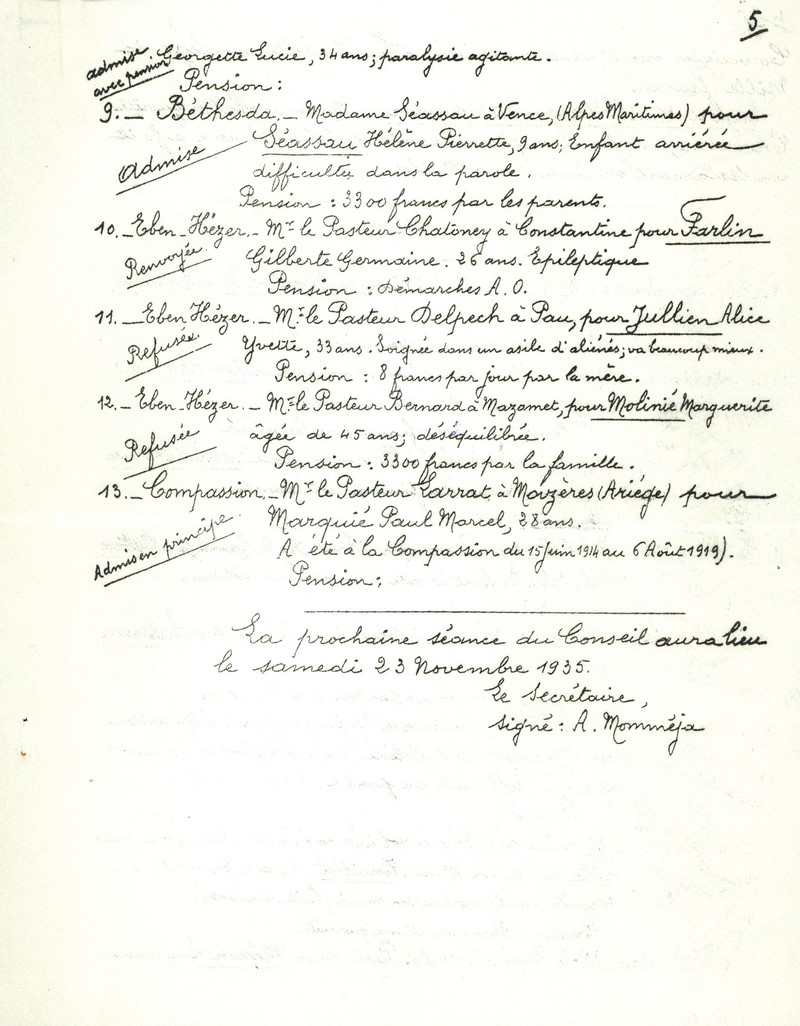 5
admise avec pension
Georgette Lucie, 34 ans; paralysie agitante.
Pension :
9._ Béthesda._ Madame Séassau à Vence, (Alpes Maritimes) pour
Admise
Séassau Hélène Pierrette, 9 ans; Enfant arriérée
difficultés dans la parole.
Pension : 3300 francs par les parents.
10._ Eben-Hézer._ Mr le Pasteur Chatoney à Constantine pour Farlin
Renvoyée.
Gilberte Germaine. 26 ans. Epileptique
Pension : Démarches A.O.
11._ Eben Hézer._ Mr le Pasteur Delpech à Pau, pour Jullien Alice
Refusée
Yvette, 33 ans. Soignée dans un asile d'aliénés; va beaucoup mieux.
Pension : 8 francs par jour par la mère.
12._ Eben-Hézer._ Mr le Pasteur Bernard à Mazamet, pour Molinié Marguerite
Refusée
âgée de 45 ans; déséquilibrée.
Pension : 3300 francs par la famille.
13._ Compassion._ Mr le Pasteur Larrat, à (Ariége) pour
Admis en principe
Marquié Paul Marcel, 28 ans.
A été à la Compassion du 15 Juin 1914 au 6 Août 1919).
Pension :
La prochaine séance du Conseil aura lieu
le samedi 23 Novembre 1935.
Le Secrétaire,
signé : A. Momméja